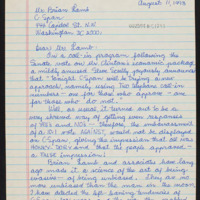 August 9, 1993
Mr. Brian Lamb
C-Span
444 Capitol St. N.W.
Washington DC 20001
Dear Mr. Lamb:
On a call-in program following the
Senate vote on Mr. Clinton's economic package,
a mildly amused Steve Scully joyfully announces
that "tonight C-Span will be trying a new
approach, namely, using two telephone call-in
numbers - one for those who approve - one
for those who do not."
Well, as usual, it turned out to be a
very shrewd way of getting even responses
of YES's and NO's - therefore, the
of 10 to 1 calls AGAINST, would not be displayed
on C-Span, giving the impression that all was
and that the people approved -
a FALSE impression!
Brian Lamb and associates have long
ago made it a science of the art of being
evasive - of being unbiased. They are no
more unbiased than the man in the moon.
I have detected the left-leaning tendencies of